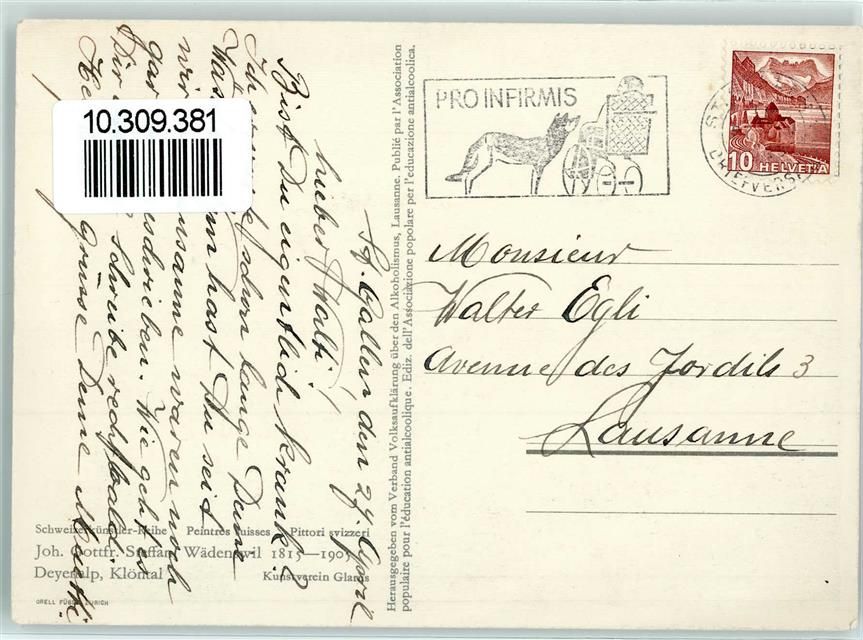 10.309.381
St. Gallen, den 29. April
Lieber Walti!
Bist Du eigentlich krank?
Ich schon lange Deine
hast Du seit
Lausanne waren noch
gar geschrieben. Wie geht es
Dir Schreibe recht bald.
Grüsse Deine
Schweizerkünstler-Reihe Peintres suisses Pittori svizzeri
Joh. Gottfr. Steffan, Wädenswil 1815—1905
Deyenalp, Klöntal Kunstverein Glarus
ORELL FÜSSLI ZÜRICH
Herausgegeben vom Verband Volksaufklärung über den Alkoholismus, Lausanne. Publié par l'Association
populaire pour l'éducation antialcoolique. Ediz. dell'Associazione popolare per l'educazione antialcoolica.
PRO INFIRMIS
ST.
BRIEFVERS
10 HELVETIA
Monsieur
Walter Egli
Avenue des Jordils 3
Lausanne